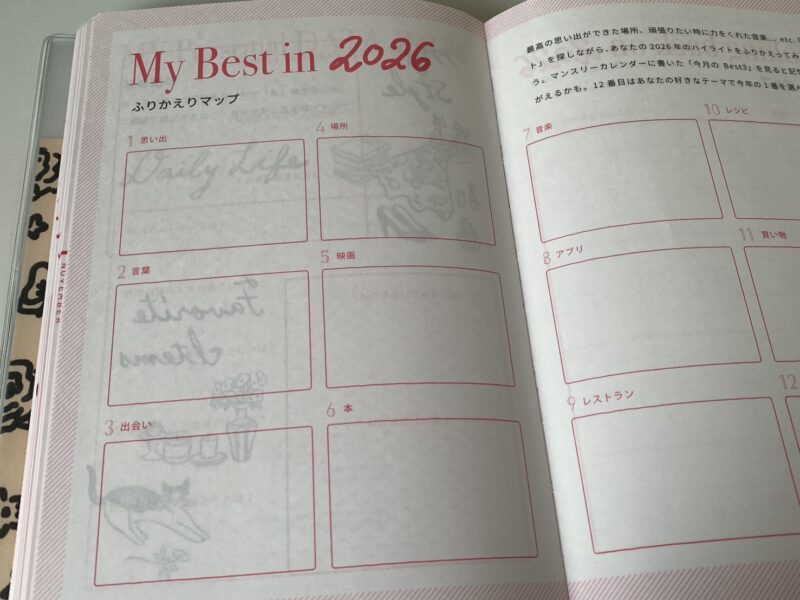 My Best in 2026
ふりかえりマップ
1 思い出
2 言葉
3 出会い
4 場所
5 映画
6 本
NOVEMBER
Daily Life
Favorite
Items
Style
最高の思い出ができた場所、頑張りたい時に力をくれた音楽… etc.
ト」を探しながら、あなたの 2026 年のハイライトをふりかえってみ
う。マンスリーカレンダーに書いた「今月の Best3」を見ると記
がえるかも。12 番目はあなたの好きなテーマで今年の 1 番を選ん
7 音楽
8 アプリ
9 レストラン
10 レシピ
11 買い物
12